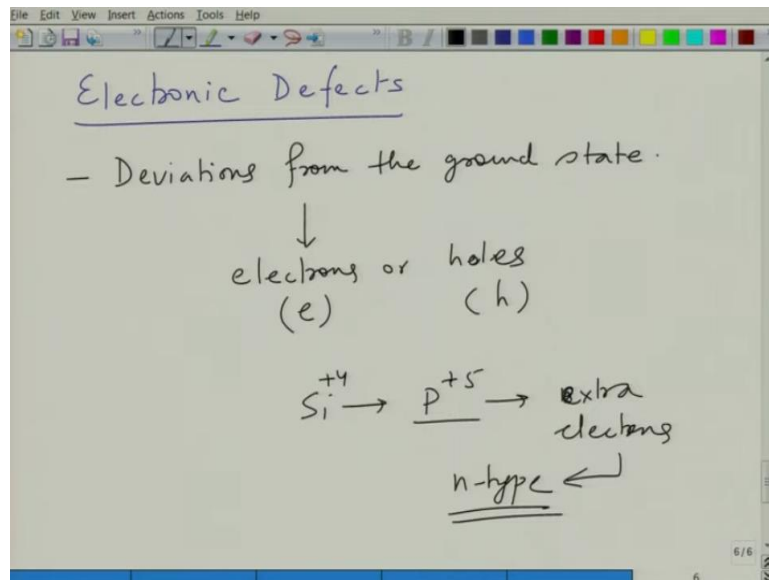 File Edit View Insert Actions Tools Help
Electronic Defects
- Deviations from the ground state.
↓
electrons or holes
(e) (h)
Si+4 → P+5 → extra
electrons
n-type
6/6
6